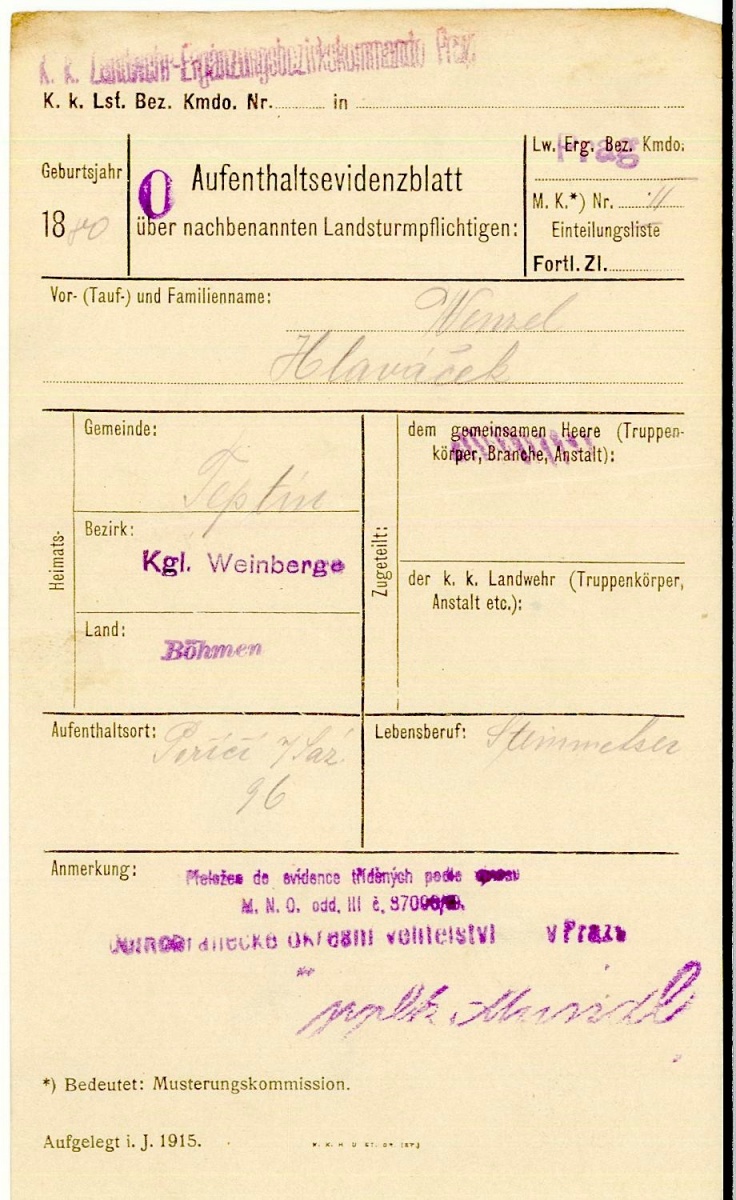 K. k. Landwehr-Ergänzungsbezirkskommando Prag
K. k. Lst. Bez. Kmdo. Nr. in
Geburtsjahr
1880
O
Aufenthaltsevidenzblatt
über nachbenannten Landsturmpflichtigen:
Lw. Erg. Bez. Kmdo.
Prag
M. K.*) Nr. 11
Einteilungsliste
Fortl. Zl.
Vor- (Tauf-) und Familienname:
Wenzel
Hlaváček
Heimats-
Gemeinde:
Teptín
Bezirk:
Kgl. Weinberge
Land:
Böhmen
Zugeteilt:
dem gemeinsamen Heere (Truppen-
körper, Branche, Anstalt):
der k. k. Landwehr (Truppenkörper,
Anstalt etc.):
Aufenthaltsort: Poříčí n/Saz.
96
Lebensberuf: Steinmetzer
Anmerkung:
Přeložen do evidence tříděných podle výnosu
M. N. O. odd. III č.
domobranecké okresní velitelství v Praze
*) Bedeutet: Musterungskommission.
Aufgelegt i. J. 1915.